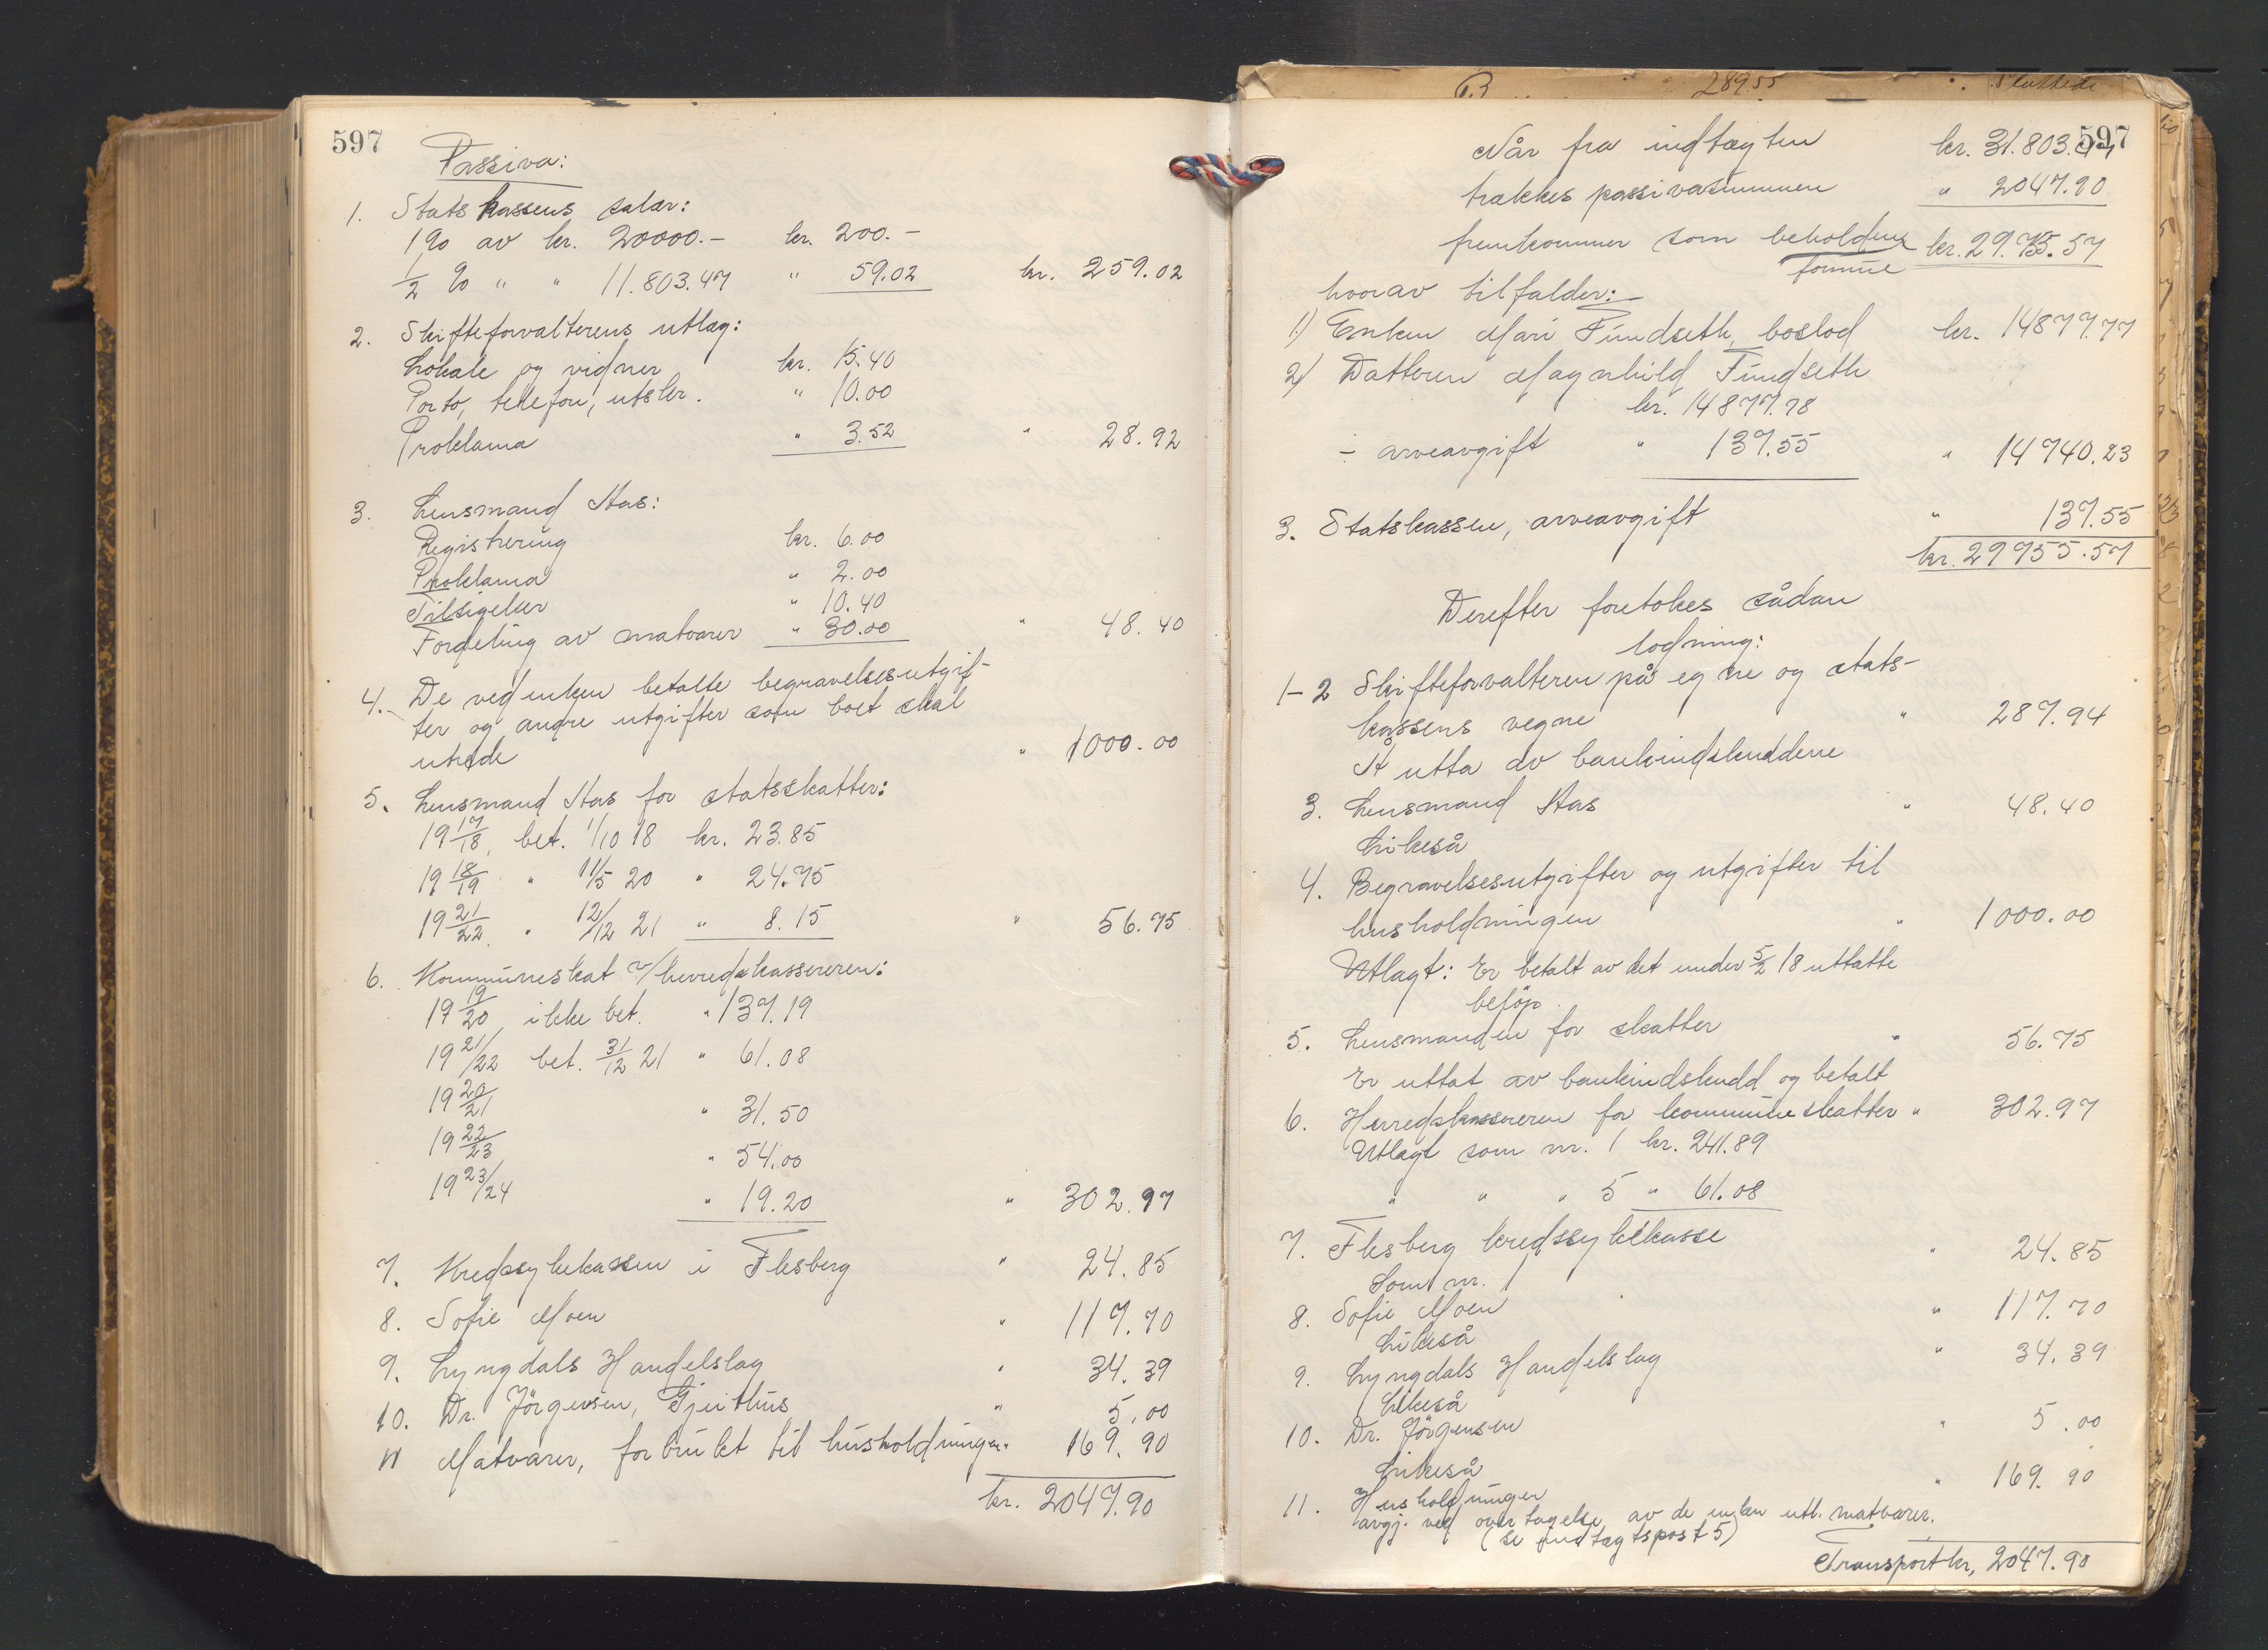 597
Passiva:
1. Statskassens salær:
1 % av kr. 20000.- kr. 200.-
1/2 % " " 11.803.47 " 59.02 kr. 259.02
2. Skifteforvalterens utlæg:
Lokale og vidner kr. 15.40
Porto, telefon, utskr. " 10.00
Proklama " 3.52 " 28.92
3. Lensmand Aas:
Registrering kr. 6.00
Proklama " 2.00
Tilsigelser " 10.40
Fordeling av matvarer " 30.00 " 48.40
4. De ved enken betalte begravelsesutgif-
ter og andre utgifter som boet skal
utrede " 1000.00
5. Lensmand Aas for statsskatter:
19 17/18, bet. 1/10 18 kr. 23.85
19 18/19 " 11/5 20 " 24.75
19 21/22 " 12/12 21 " 8.15 " 56.75
6. Kommuneskat v/herredskassereren:
19 19/20 ikke bet. " 137.19
19 21/22 bet. 31/12 21 " 61.08
19 20/21 " 31.50
19 22/23 " 54.00
19 23/24 " 19.20 " 302.97
7. Kredssykekassen i Flesberg " 24.85
8. Sofie Moen " 117.70
9. Lyngdals Handelslag " 34.39
10. Dr. Jörgensen, Gjeithus " 5.00
11 Matvarer, forbruket til husholdningen " 169.90
kr. 2047.90
289.55
597
Når fra indtægten kr. 31.803.47
trækkes passivasummen " 2047.90
fremkommer som beholden kr. 29.755.57
formue
hvorav tilfalder:
1) Enken Mari Fundseth, boslod kr. 14877.77
2) Datteren Magnhild Fundseth
kr. 14877.78
÷ arveavgift " 137.55 " 14740.23
3. Statskassen, arveavgift " 137.55
kr. 29755.57
Derefter foretokes sådan
lodning:
1-2 Skifteforvalteren på egne og stats-
kassens vegne " 287.94
At utta av bankindskuddene
3. Lensmand Aas " 48.40
Likeså
4. Begravelsesutgifter og utgifter til
husholdningen " 1000.00
Utlagt: Er betalt av det under 5/2 18 uttatte
beløp.
5. Lensmanden for skatter " 56.75
Er uttat av bankindskudd og betalt
6. Herredskassereren for kommuneskatter " 302.97
Utlagt som nr. 1 kr. 241.89
" " " 5 " 61.08
7. Flesberg kredssykekasse " 24.85
Som nr. 1
8. Sofie Moen " 117.70
Likeså
9. Lyngdals Handelslag " 34.39
Likeså
10. Dr. Jörgensen " 5.00
Likeså
11. Husholdningen " 169.90
avgj. ved overtagelse av de enken utl. matvarer.
(se indtægtspost 5)
Transport kr. 2047.90